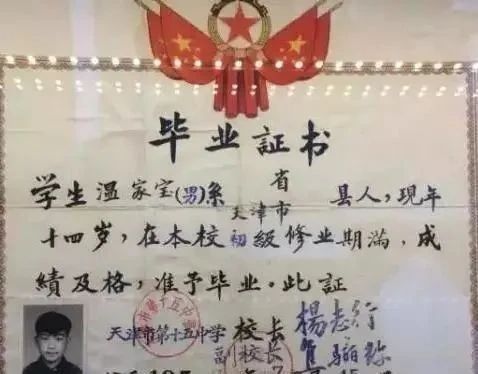 毕业証书
学生温家宝(男)系 省 县人,現年
天津市
十四岁,在本校初級修业期滿,成
績及格,准予毕业。此証
天津市第十五中学 校长 楊志行
副校长